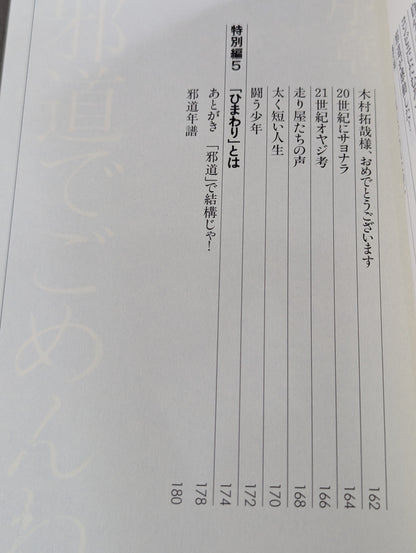 木村拓哉様、おめでとうございます 162
20世紀にサヨナラ 164
21世紀オヤジ考 166
走り屋たちの声 168
太く短い人生 170
闘う少年 172
特別編5 「ひまわり」とは 174
あとがき 「邪道」で結構じゃ! 178
邪道年譜 180
邪道でごめんね